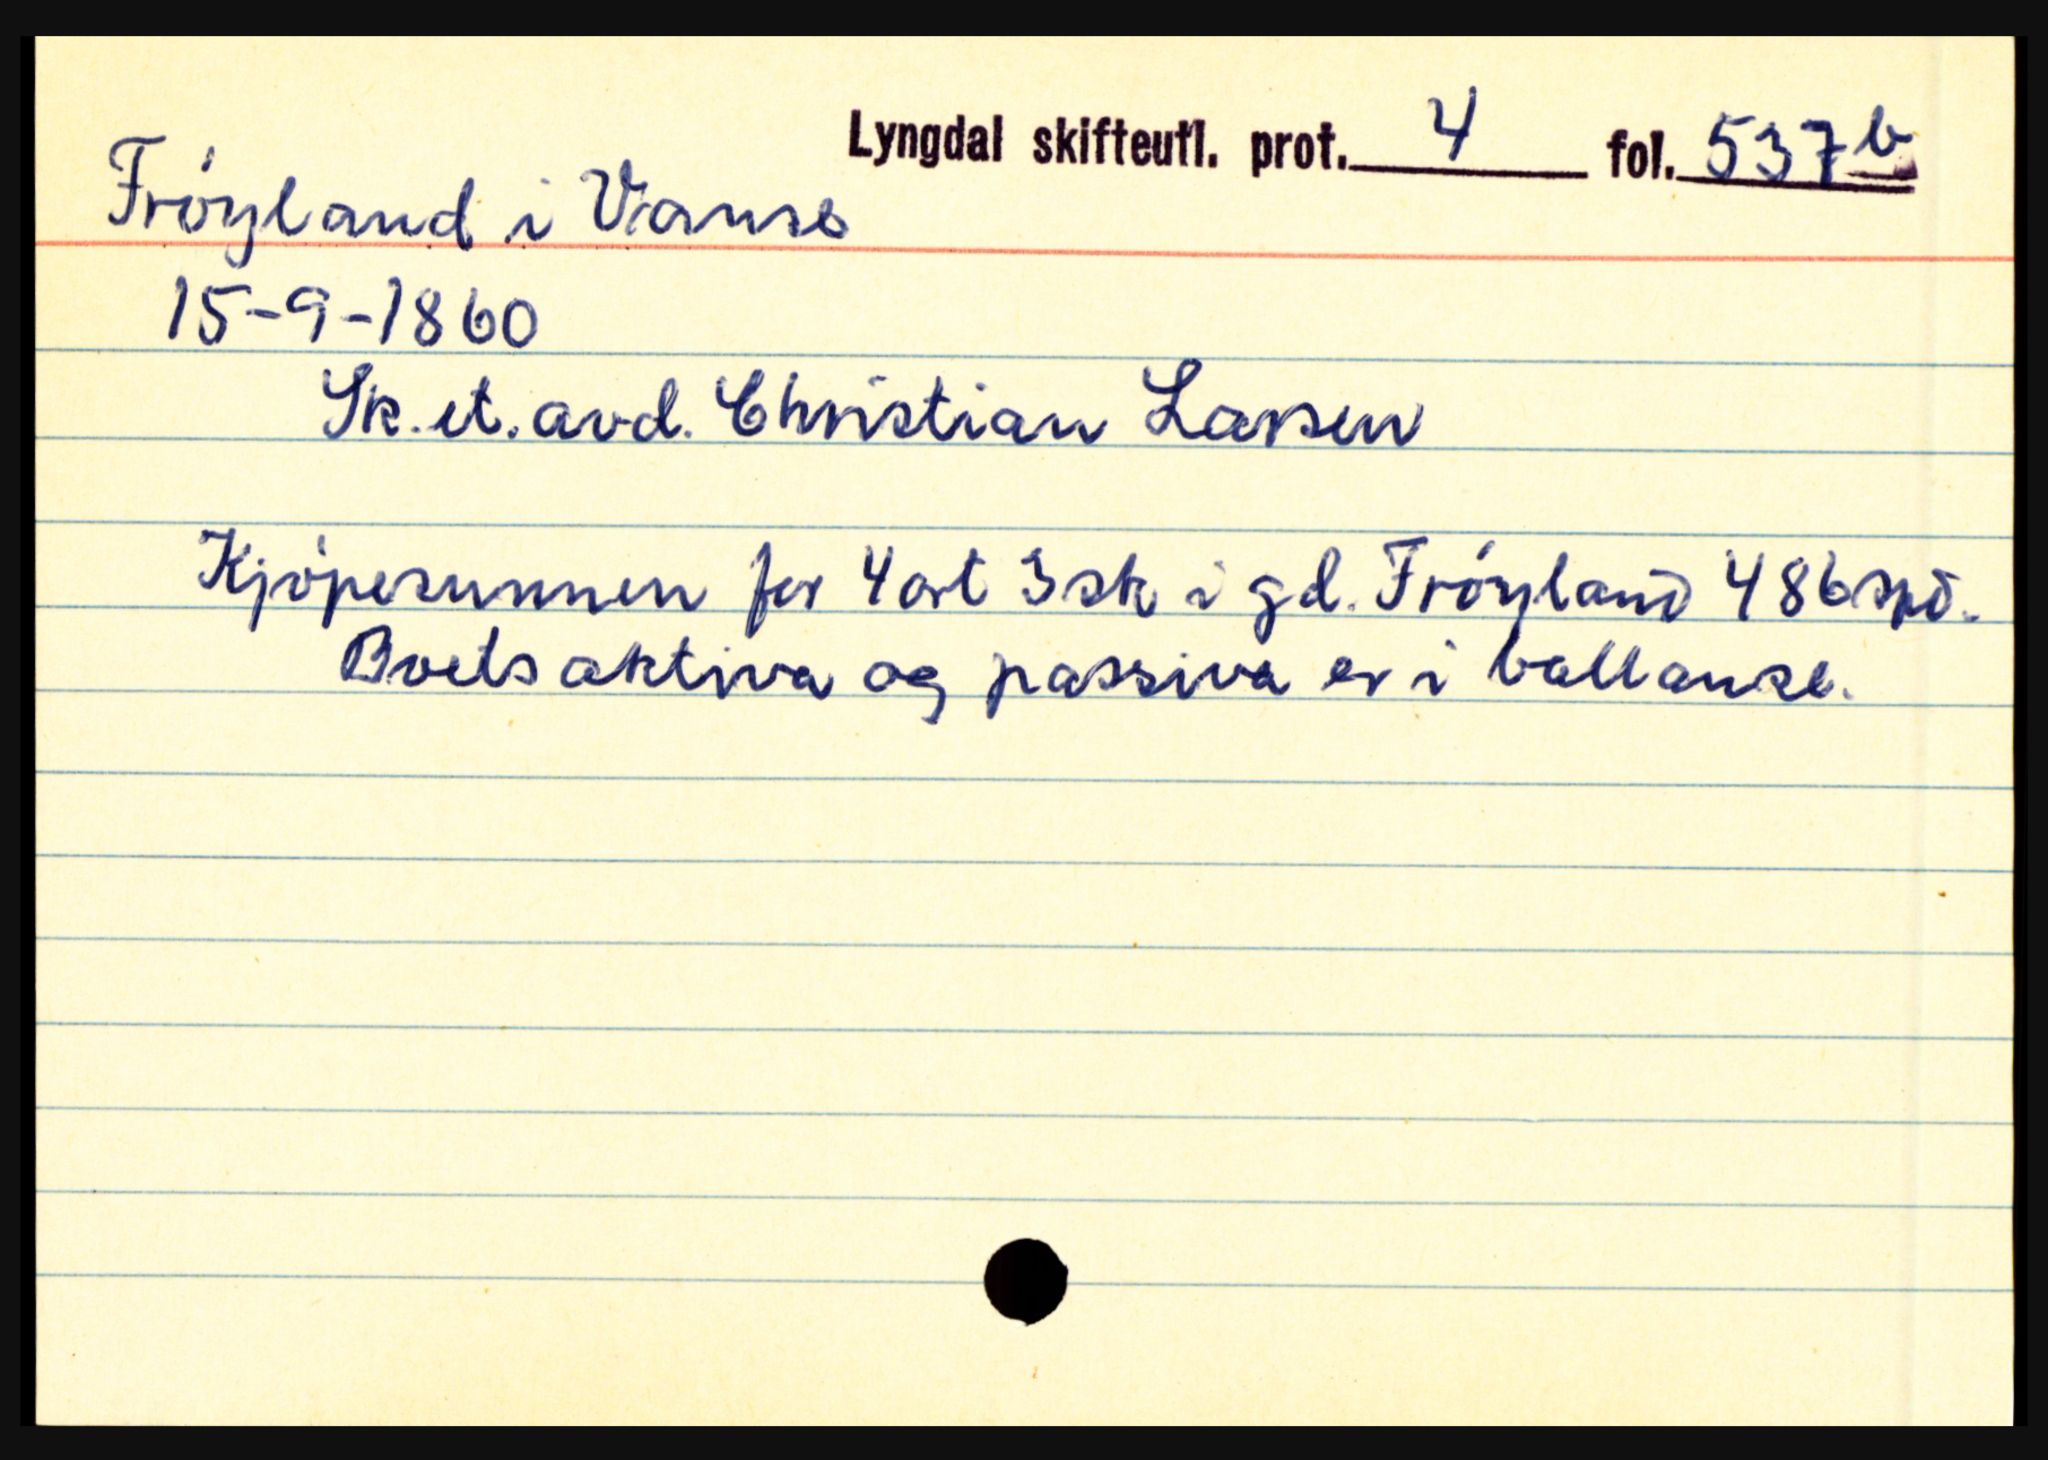 Lyngdal skifteutl. prot. 4 fol. 537b
Frøyland i Vanse
15-9-1860
Sk. et. avd. Christian Larsen
Kjøpesummen for 4 ort 3 sk i gd. Frøyland 486 spd.
Boets aktiva og passiva er i ballanse.